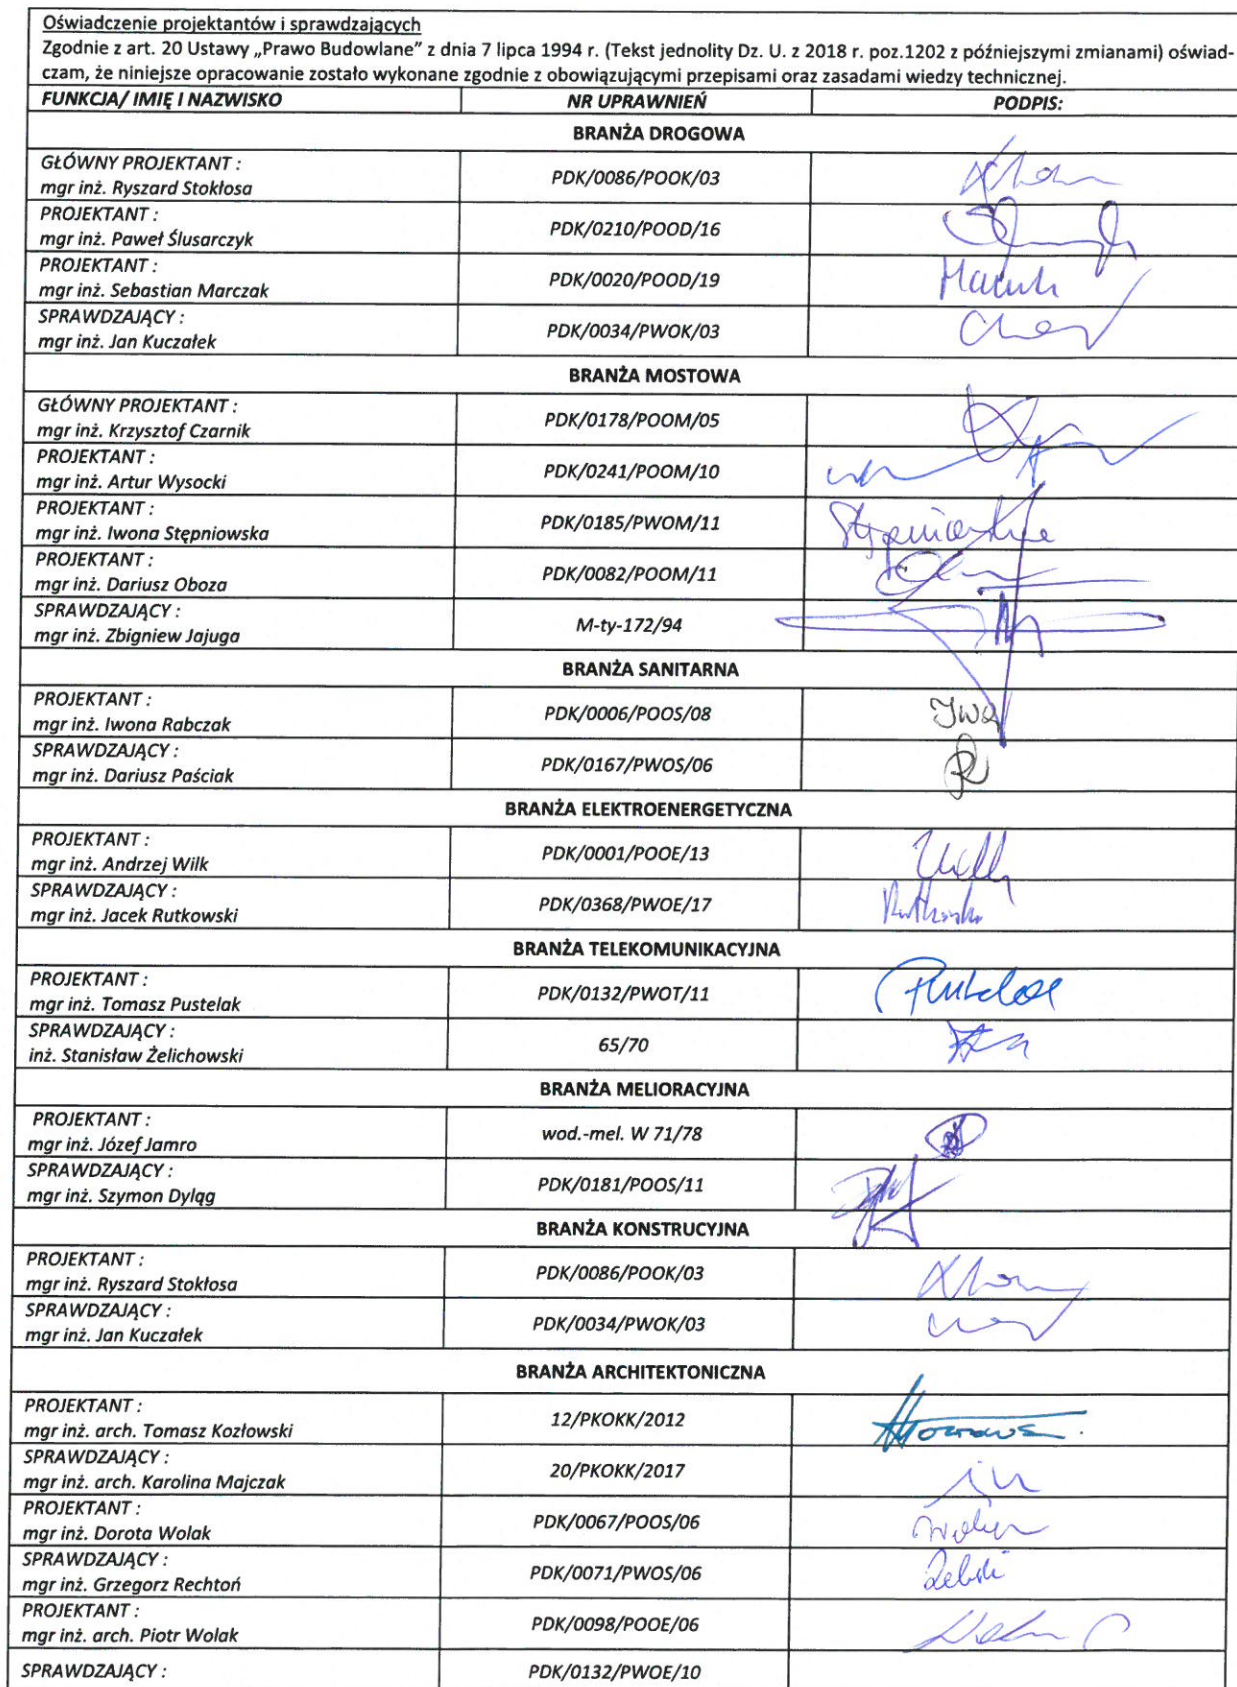 Oświadczenie projektantów i sprawdzających
Zgodnie z art. 20 Ustawy „Prawo Budowlane” z dnia 7 lipca 1994 r. (Tekst jednolity Dz. U. z 2018 r. poz.1202 z późniejszymi zmianami) oświad-
czam, że niniejsze opracowanie zostało wykonane zgodnie z obowiązującymi przepisami oraz zasadami wiedzy technicznej.
FUNKCJA/ IMIĘ I NAZWISKO NR UPRAWNIEŃ PODPIS:
BRANŻA DROGOWA
GŁÓWNY PROJEKTANT :
mgr inż. Ryszard Stokłosa PDK/0086/POOK/03
PROJEKTANT :
mgr inż. Paweł Ślusarczyk PDK/0210/POOD/16
PROJEKTANT :
mgr inż. Sebastian Marczak PDK/0020/POOD/19
SPRAWDZAJĄCY :
mgr inż. Jan Kuczałek PDK/0034/PWOK/03
BRANŻA MOSTOWA
GŁÓWNY PROJEKTANT :
mgr inż. Krzysztof Czarnik PDK/0178/POOM/05
PROJEKTANT :
mgr inż. Artur Wysocki PDK/0241/POOM/10
PROJEKTANT :
mgr inż. Iwona Stępniowska PDK/0185/PWOM/11
PROJEKTANT :
mgr inż. Dariusz Oboza PDK/0082/POOM/11
SPRAWDZAJĄCY :
mgr inż. Zbigniew Jajuga M-ty-172/94
BRANŻA SANITARNA
PROJEKTANT :
mgr inż. Iwona Rabczak PDK/0006/POOS/08
SPRAWDZAJĄCY :
mgr inż. Dariusz Paściak PDK/0167/PWOS/06
BRANŻA ELEKTROENERGETYCZNA
PROJEKTANT :
mgr inż. Andrzej Wilk PDK/0001/POOE/13
SPRAWDZAJĄCY :
mgr inż. Jacek Rutkowski PDK/0368/PWOE/17
BRANŻA TELEKOMUNIKACYJNA
PROJEKTANT :
mgr inż. Tomasz Pustelak PDK/0132/PWOT/11
SPRAWDZAJĄCY :
inż. Stanisław Żelichowski 65/70
BRANŻA MELIORACYJNA
PROJEKTANT :
mgr inż. Józef Jamro wod.-mel. W 71/78
SPRAWDZAJĄCY :
mgr inż. Szymon Dyląg PDK/0181/POOS/11
BRANŻA KONSTRUCYJNA
PROJEKTANT :
mgr inż. Ryszard Stokłosa PDK/0086/POOK/03
SPRAWDZAJĄCY :
mgr inż. Jan Kuczałek PDK/0034/PWOK/03
BRANŻA ARCHITEKTONICZNA
PROJEKTANT :
mgr inż. arch. Tomasz Kozłowski 12/PKOKK/2012
SPRAWDZAJĄCY :
mgr inż. arch. Karolina Majczak 20/PKOKK/2017
PROJEKTANT :
mgr inż. Dorota Wolak PDK/0067/POOS/06
SPRAWDZAJĄCY :
mgr inż. Grzegorz Rechtoń PDK/0071/PWOS/06
PROJEKTANT :
mgr inż. arch. Piotr Wolak PDK/0098/POOE/06
SPRAWDZAJĄCY : PDK/0132/PWOE/10